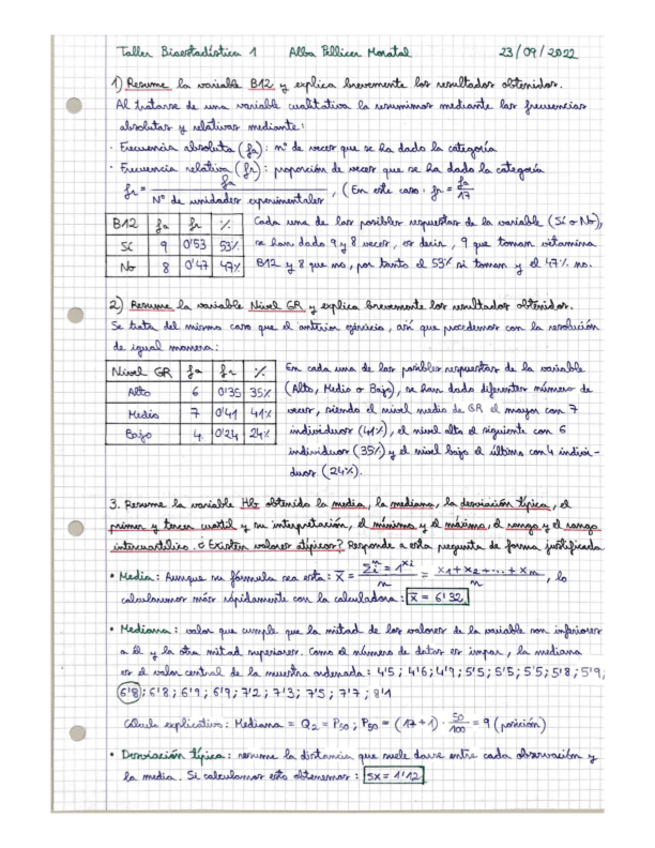 Taller Bioestadística 1 Alba Pellicer Moratal 23/09/2022
1) Resume la variable B12 y explica brevemente los resultados obtenidos.
Al tratarse de una variable cualitativa la resumimos mediante las frecuencias
absolutas y relativas mediante:
· Frecuencia absoluta (fa): nº de veces que se ha dado la categoría
· Frecuencia relativa (fr): proporción de veces que se ha dado la categoría
fr = fa / Nº de unidades experimentales, (En este caso: fr = fa/17
B12 fa fr %
Sí 9 0'53 53%
No 8 0'47 47%
Cada una de las posibles respuestas de la variable (Sí o No),
se han dado 9 y 8 veces, es decir, 9 que toman vitamina
B12 y 8 que no, por tanto el 53% sí toman y el 47% no.
2) Resume la variable Nivel GR y explica brevemente los resultados obtenidos.
Se trata del mismo caso que el anterior ejercicio, así que procedemos con la resolución
de igual manera:
Nivel GR fa fr %
Alto 6 0'35 35%
Medio 7 0'41 41%
Bajo 4 0'24 24%
En cada una de las posibles respuestas de la variable
(Alto, Medio o Bajo), se han dado diferentes números de
veces, siendo el nivel medio de GR el mayor con 7
individuos (41%), el nivel alto el siguiente con 6
individuos (35%) y el nivel bajo el último con 4 indivi-
duos (24%).
3. Resume la variable Hb obtenido la media, la mediana, la desviación típica, el
primer y tercer cuartil y su interpretación, el mínimo y el máximo, el rango y el rango
intercuartílico. ¿Existen valores atípicos? Responde a esta pregunta de forma justificada
• Media: Aunque su fórmula sea esta: x̄ = Σⁿi=1 xi / n = x1 + x2 + ... + xn / n, lo
calculamos más rápidamente con la calculadora: x̄ = 6'32
• Mediana: valor que cumple que la mitad de los valores de la variable son inferiores
a él y la otra mitad superiores. Como el número de datos es impar, la mediana
es el valor central de la muestra ordenada: 4'5; 4'6; 4'9; 5'5; 5'5; 5'5; 5'8; 5'9;
6'8; 6'8; 6'9; 6'9; 7'2; 7'3; 7'5; 7'7; 8'1
Cálculo explicativo: Mediana = Q2 = P50; P50 = (17+1) · 50/100 = 9 (posición)
• Desviación típica: resume la distancia que suele darse entre cada observación y
la media. Si calculamos esto obtenemos: Sx = 1'12